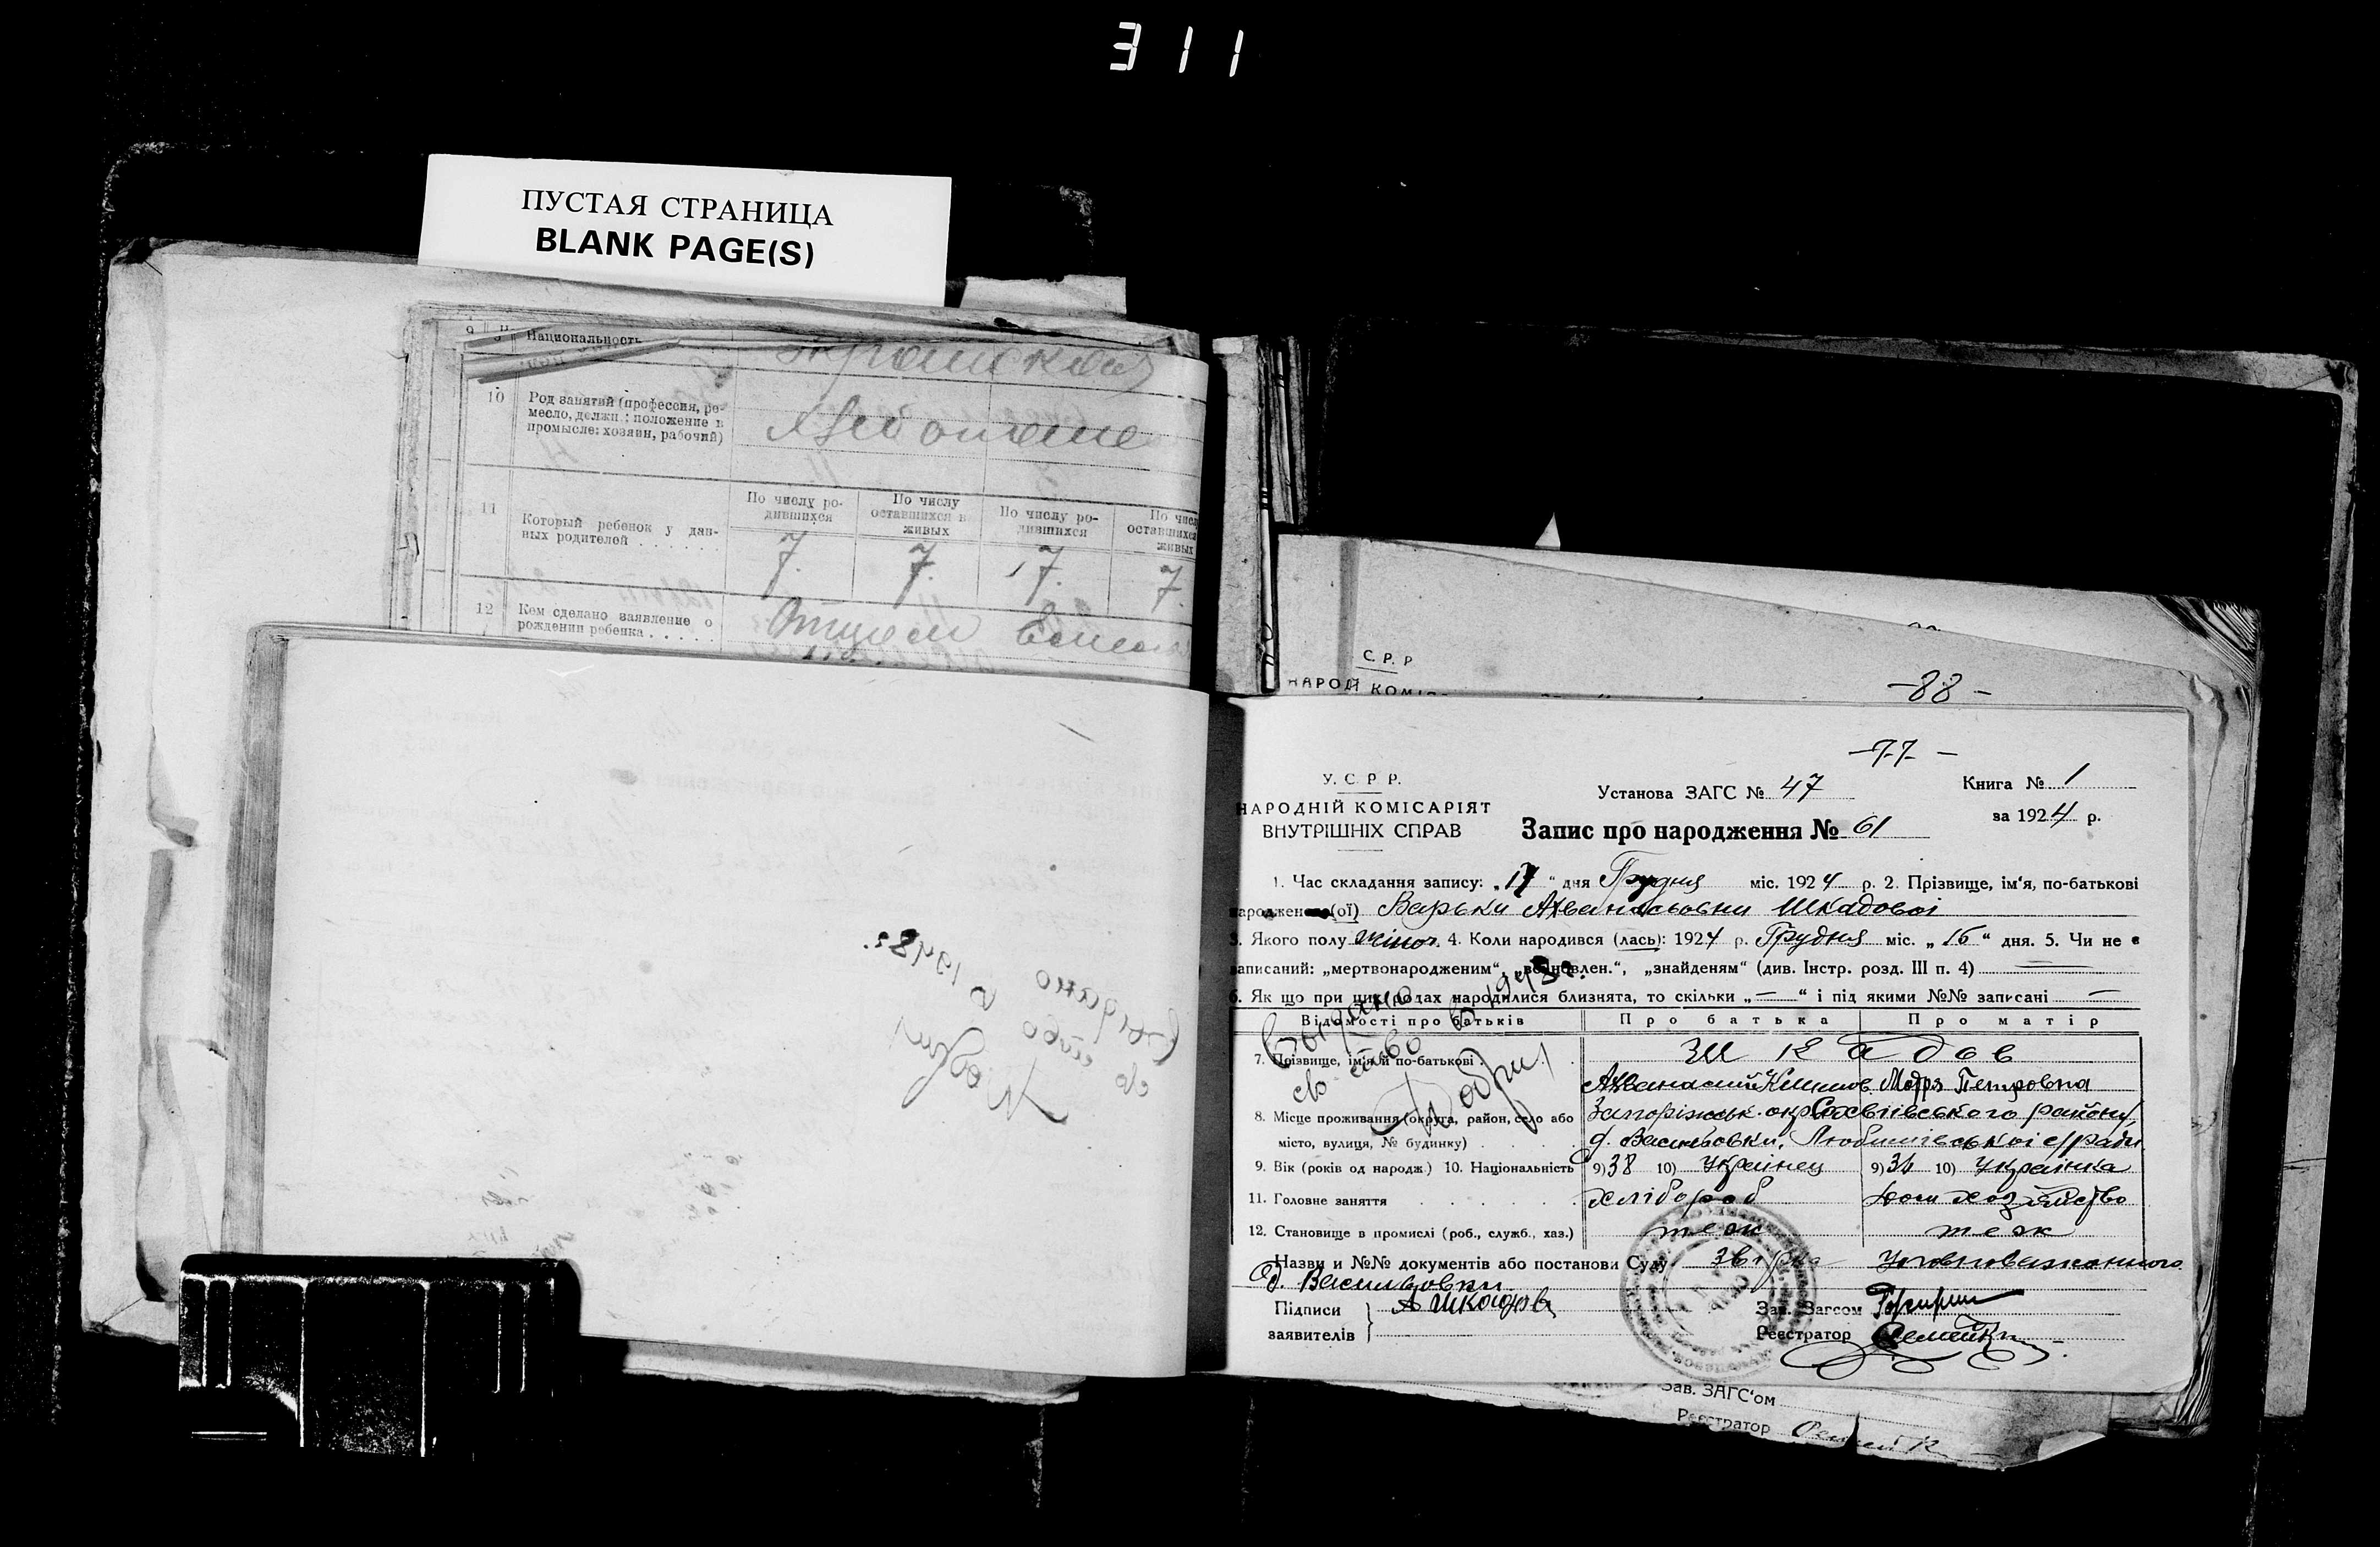 311
ПУСТАЯ СТРАНИЦА
BLANK PAGE(S)
9 Национальность
10 Род занятий (профессия, ре-
месло, должн.: положение в
промысле: хозяин, рабочий)
11 Который ребенок у дан-
ных родителей . . . . . . .
По числу ро-
дившихся
По числу
оставшихся в
живых
По числу ро-
дившихся
По числ
оставшихся
живых
7. 7. 7. 7.
12 Кем сделано заявление о
рождении ребенка . . . . .
Отцом
С. Р. Р
НАРОД КОМІ
-88-
-77-
У. С. Р. Р.
НАРОДНІЙ КОМІСАРІЯТ
ВНУТРІШНІХ СПРАВ
Установа ЗАГС № 47
Книга № 1
за 1924 р.
Запис про народження № 61
1. Час складання запису: „17“ дня Грудня міс. 1924 р. 2. Прізвище, ім'я, по-батькові
народжен (ої) Варьки Афанасьовни Шкадовоі
3. Якого полу жіноч. 4. Коли народився (лась): 1924 р. Грудня міс. „16“ дня. 5. Чи не є
записаний: „мертвонародженим“, „всиновлен.“, „знайденям“ (див. Інстр. розд. III п. 4)
6. Як що при цих родах народилися близнята, то скільки „—“ і під якими №№ записані —
Відомості про батьків Про батька Про матір
Выдано
св-ство в 1948 г.
7. Прізвище, ім'я й по-батькові
Шкадов
Афанасий Климов. Мотря Петровна
8. Місце проживання (округа, район, село або
місто, вулиця, № будинку)
Запоріжськ. окр Софіівського району
д. Васильовки, Любимівськоі с/ради
9. Вік (років од народж.) 10. Національність 9) 38 10) Украінец 9) 36 10) Украінка
11. Головне заняття хлібороб дом хозяйство
12. Становище в промислі (роб., служб., хаз.) теж теж
Назви и №№ документів або постанови Суду Уповноваженного
д. Васильовки
Підписи
заявителів
А Шкадов
Зав. Загсом
Реєстратор
Зав. ЗАГС'ом
Реєстратор